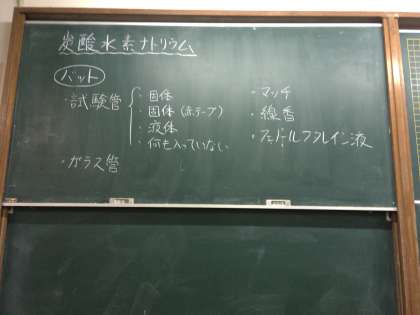 炭酸水素ナトリウム
バット
・試験管
・固体
・固体(赤テープ)
・液体
・何も入っていない
・ガラス管
・マッチ
・線香
・フェノールフタレイン液